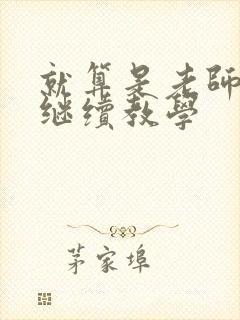 就算是老師
继續教學
茅家埠